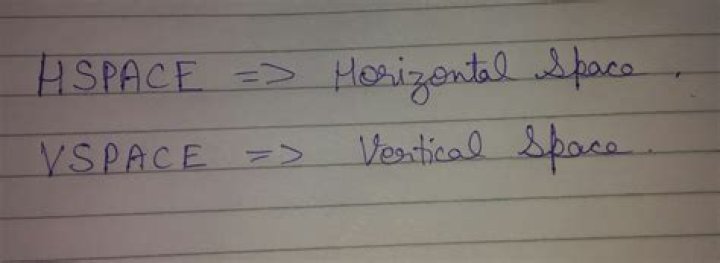 HSPACE => Horizontal Space.
VSPACE => Vertical Space.